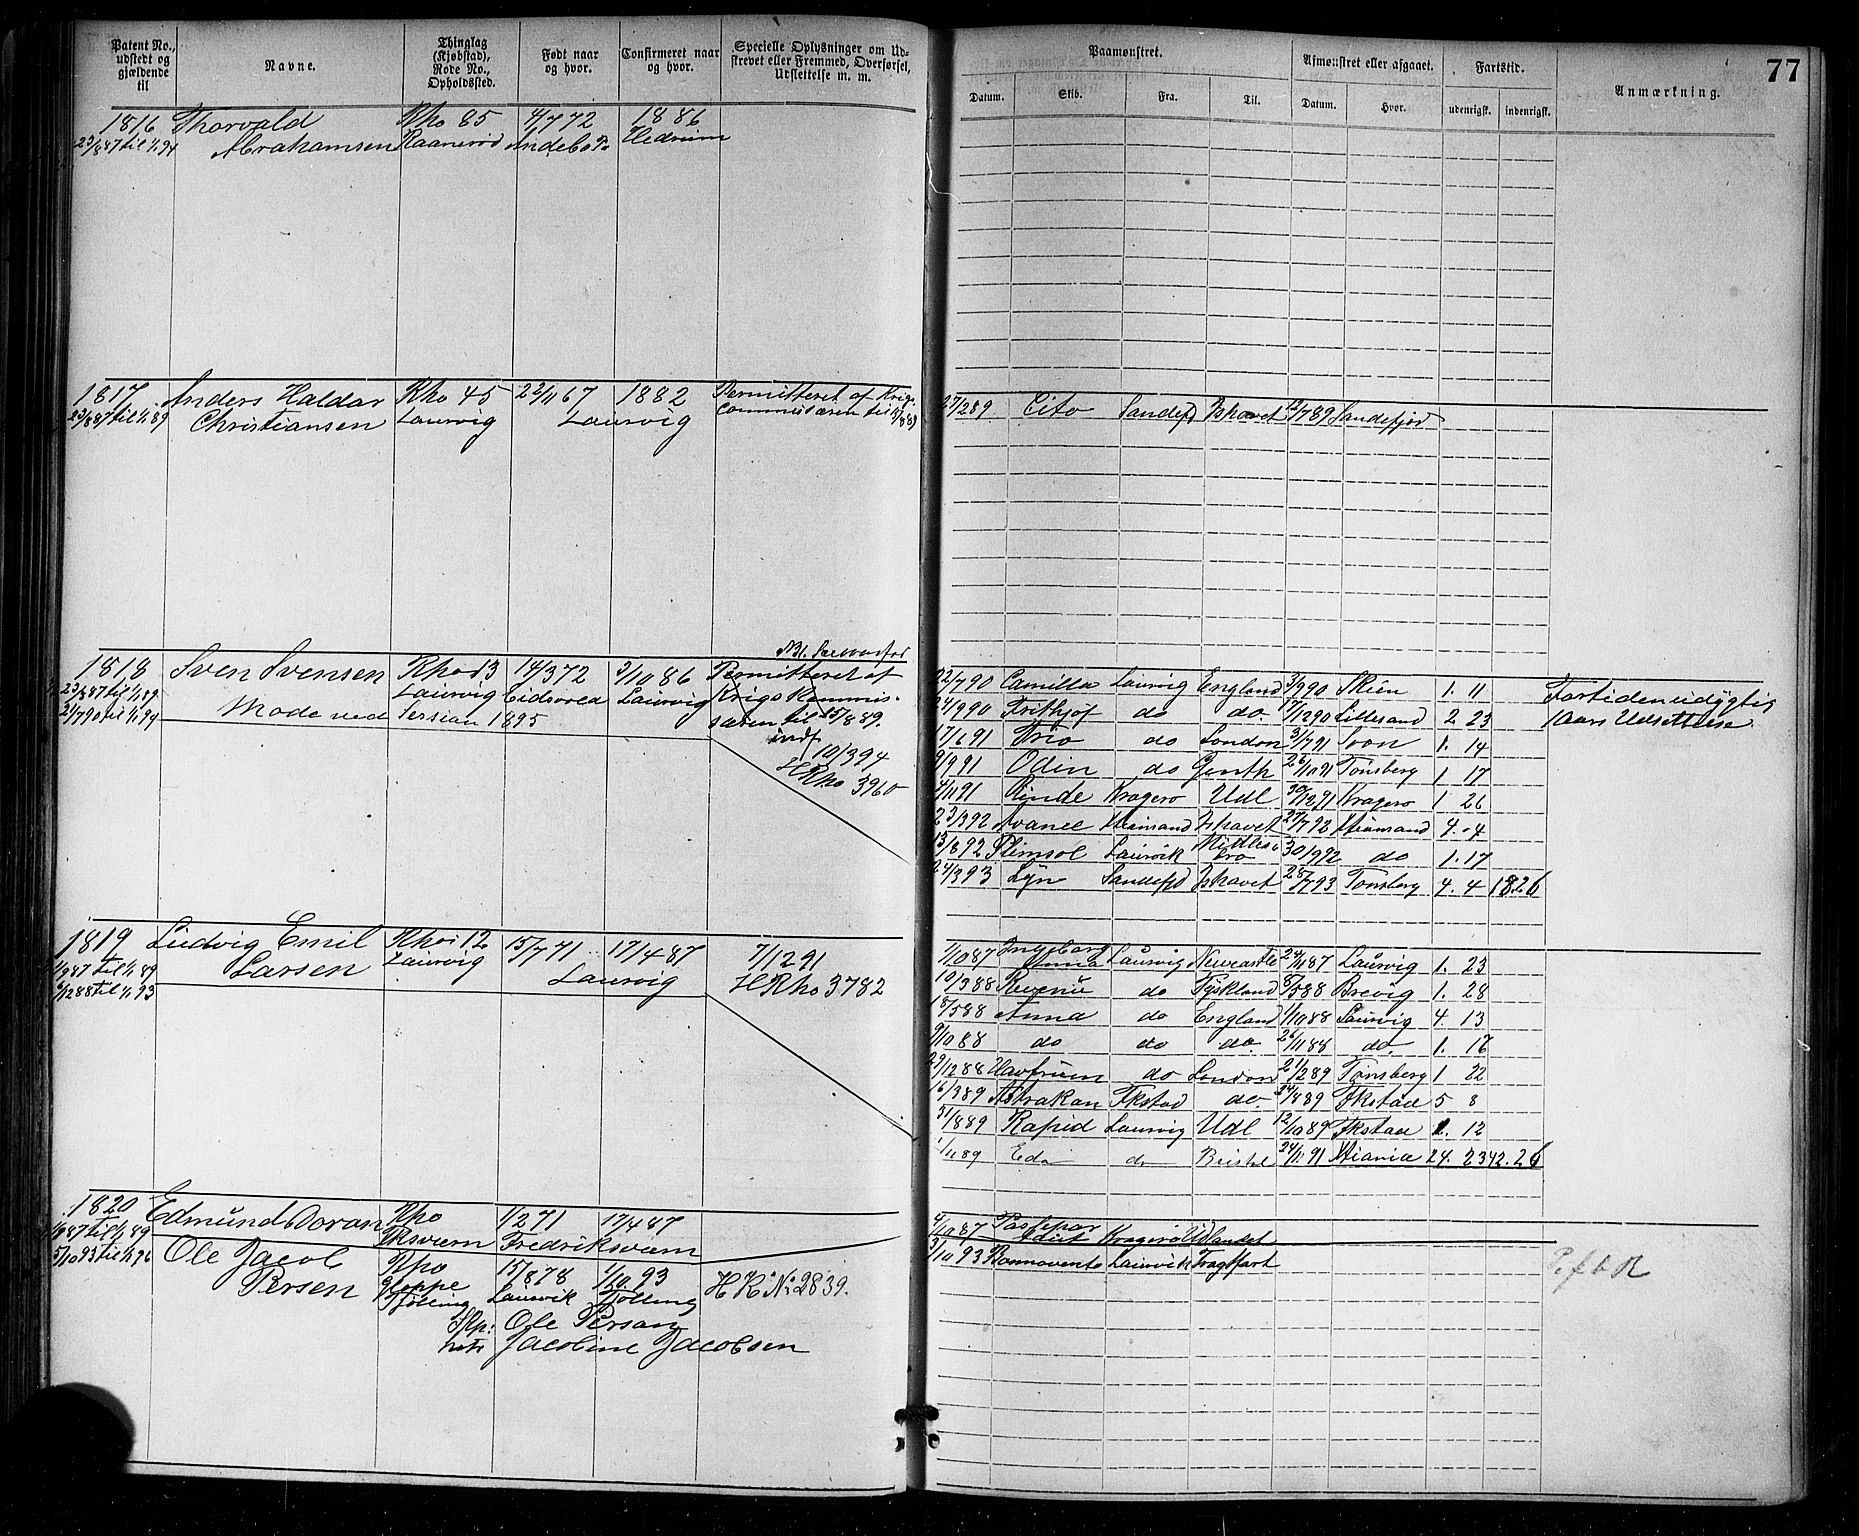 77
Patent No., udstedt og gjældende til
Navne.
Thinglag (Kjøbstad), Rode No., Opholdssted.
Født naar og hvor.
Confirmeret naar og hvor.
Specielle Oplysninger om Udstrevet eller Fremmed, Overførsel, Udslettelse m. m.
Paamønstret.
Afmønstret eller afgaaet.
Fartstid.
Anmærkning.
Datum.
Skib.
Fra.
Til.
Datum.
Hvor.
udenrigsk.
indenrigsk.
1816 Thorvald Rho 85 4/7 72 1886
23/8 87 til 1/1 94 Abrahamsen Haanerød Andebo Hedrum
1817 Anders Haldor Rho 45 22/11 67 1882 Permitteret af Krigs
23/8 87 til 1/1 89 Christiansen Laurvig Laurvig commissæren til
27/2 89 Cito Sandefjd Ishavet 12/7 89 Sandefjord
1818 Sven Svensen Rho 13 14/3 72 3/10 86 Permitteret af
23/8 87 til 1/1 89 Laurvig Eidsvold Laurvig Krigskommis-
21/7 90 til 1/1 94 Møde ved Session 1895 særen til 15/8 89.
indf
10/3 94
HRho 3960
22/7 90 Camilla Laurvig England 3/9 90 Skien 1. 11 Fartiden udygtig
24/9 90 Frithjof do do. 17/12 90 Lillesand 2 23 1 Aars Udsettelse
17/6 91 Trio do London 31/7 91 Svon 1. 14
9/9 91 Odin do Genth 26/10 91 Tønsberg 1 17
4/11 91 Rinde Kragerø Udl 30/12 91 Kragerø 1 26
23/3 92 Avance Krinsand Ishavet 27/7 92 Krinsand 4. 4
13/8 92 Plimsol Laurvik Midlesbro 30/9 92 do 1. 17
24/3 93 Lyn Sandefjd Ishavet 28/7 93 Tønsberg 4. 4 18.26
1819 Ludvig Emil Rho 12 15/7 71 17/4 87 7/12 91
1/9 87 til 1/1 89 Larsen Laurvig Laurvig HRho 3782
/12 88 til 1/1 93
1/10 87 Ingeborg Anna Laurvig Newcastle 24/11 87 Laurvig 1. 23
10/3 88 Revenü do Tyskland 8/5 88 Brevig 1. 28
18/5 88 Anna do England 1/10 88 Laurvig 4. 13
9/10 88 do do do. 26/11 88 do. 1. 17
29/12 88 Havfruen do London 21/2 89 Tønsberg 1 22
16/3 89 Astrakan Fkstad do. 24/8 89 Fkstad 5 8
31/8 89 Rapid Laurvig Udl 12/10 89 Fkstad 1. 12
1/11 89 Eda do Bristol 24/11 91 Kiania 24. 23 42.26
1820 Edmund Doran Rho 1/2 71 17/4 87
1/9 87 til 1/1 89 Fksværn Fredriksværn
5/10 93 til 1/1 96 Ole Jacob Rho 15/8 78 1/10 93
Persen Kloppe Tjølling Laurvik Tjølling H R. No: 2839.
Ole Persan
Jacobine Jacobsen
4/10 87 Kragerø Udlandet
3/10 93 Bonnovento Laurvik Fragtfart